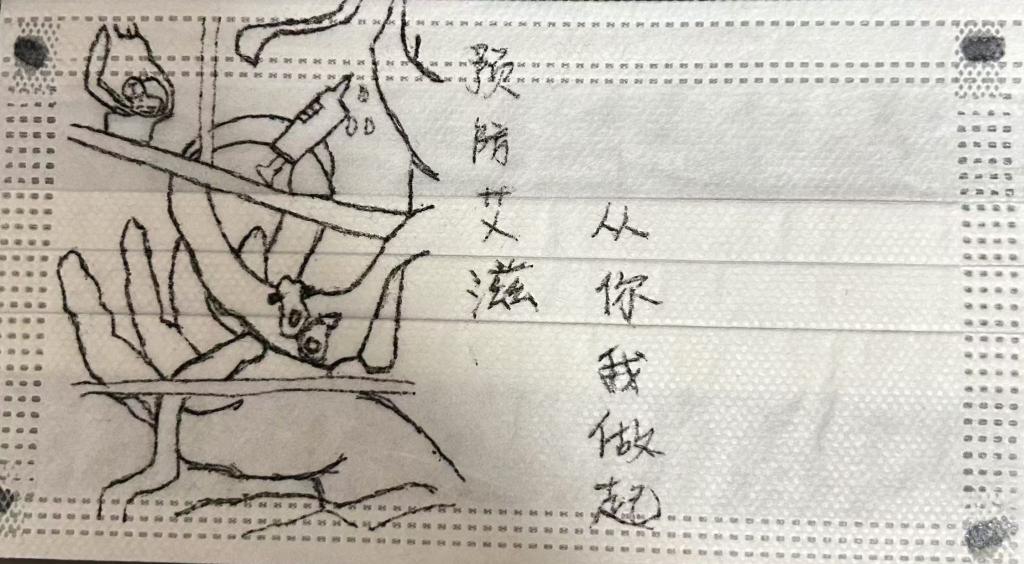 预防艾滋
从你我做起